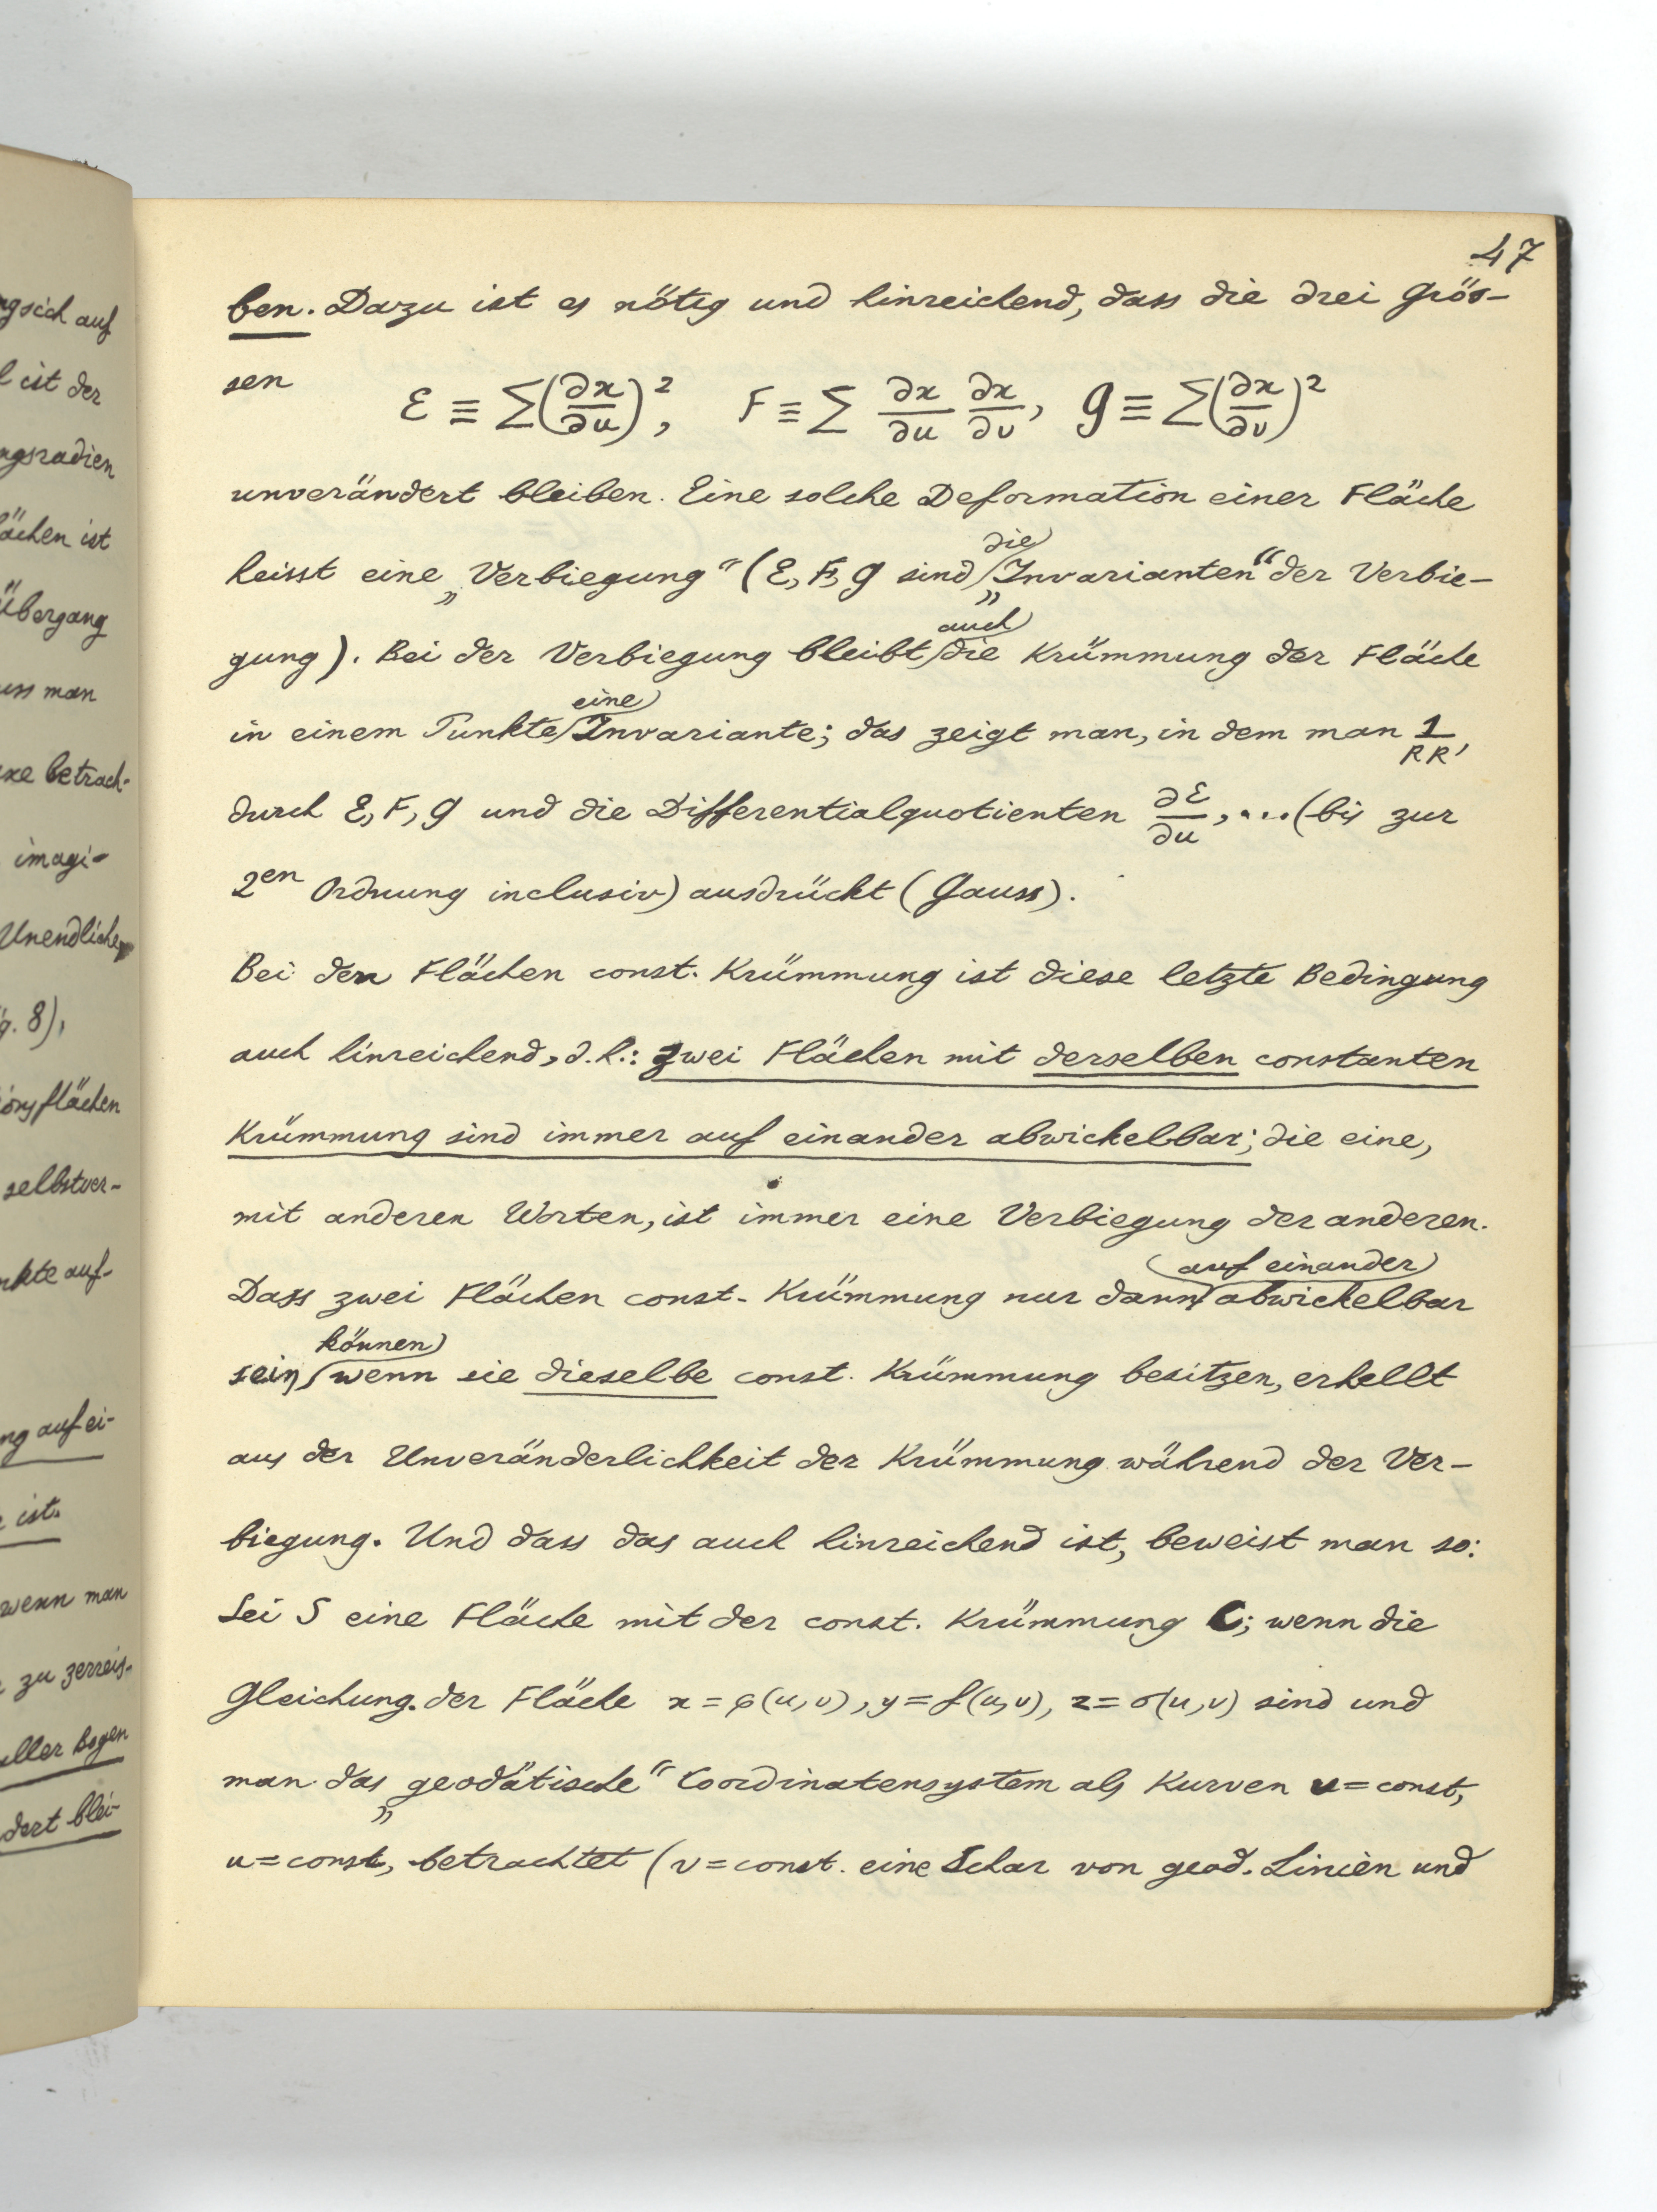 ngsich auf
l ist der
ngsradien
ächen ist
Übergang
uss man
xe betrach-
imagi-
Unendliche
g. 8),
örsflächen
selbstver-
nkte auf-
ng auf ei-
e ist.
wenn man
zu zerreis-
aller Bogen
dert blei-
47
ben. Dazu ist es nötig und hinreichend, dass die drei Grös-
sen
E ≡ ∑(∂x/∂u)², F ≡ ∑ ∂x/∂u ∂x/∂v, G ≡ ∑(∂x/∂v)²
unverändert bleiben. Eine solche Deformation einer Fläche
heisst eine „Verbiegung“ (E, F, G sind die „Invarianten“ der Verbie-
gung). Bei der Verbiegung bleibt auch die Krümmung der Fläche
in einem Punkte eine Invariante; das zeigt man, in dem man 1/RR'
durch E, F, G und die Differentialquotienten ∂E/∂u, ... (bis zur
2en Ordnung inclusiv) ausdrückt (Gauss).
Bei den Flächen const. Krümmung ist diese letzte Bedingung
auch hinreichend, d.h.: zwei Flächen mit derselben constanten
Krümmung sind immer auf einander abwickelbar; die eine,
mit anderen Worten, ist immer eine Verbiegung der anderen.
Dass zwei Flächen const. Krümmung nur dann auf einander abwickelbar
sein können, wenn sie dieselbe const. Krümmung besitzen, erhellt
aus der Unveränderlichkeit der Krümmung während der Ver-
biegung. Und dass das auch hinreichend ist, beweist man so:
Sei S eine Fläche mit der const. Krümmung C; wenn die
Gleichung. der Fläche x = φ(u,v), y = f(u,v), z = σ(u,v) sind und
man das „geodätische“ Coordinatensystem als Kurven v = const,
u = const, betrachtet (v = const. eine Schar von geod. Linien und